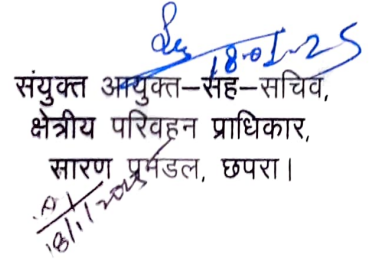 18-01-25
संयुक्त आयुक्त–सह–सचिव,
क्षेत्रीय परिवहन प्राधिकार,
सारण प्रमंडल, छपरा।
18/1/2025